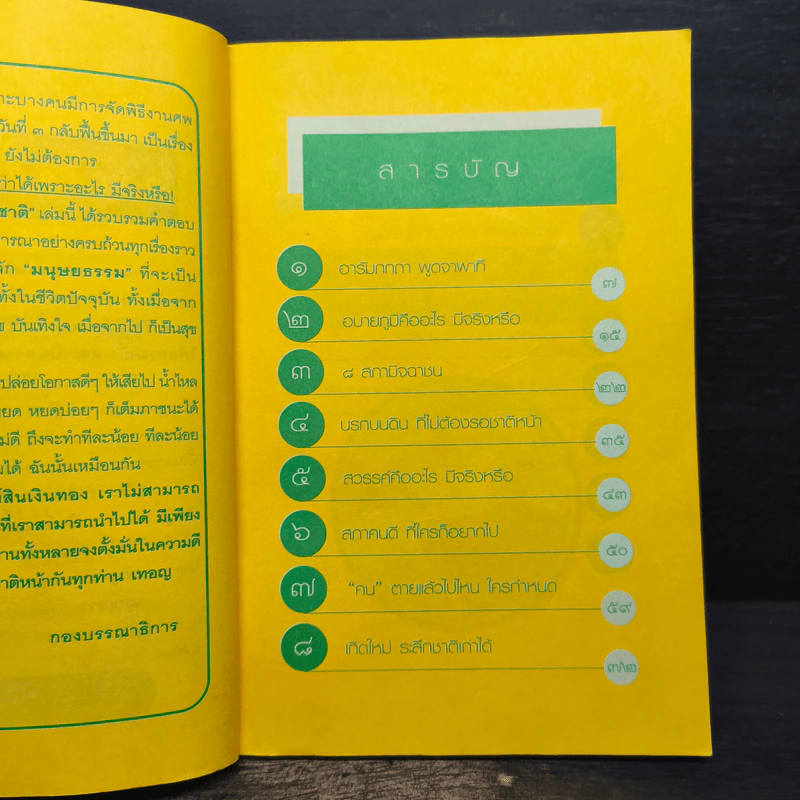 ะบางคนมีการจัดพิธีงานศพ
วันที่ ๓ กลับฟื้นขึ้นมา เป็นเรื่อง
ยังไม่ต้องการ
ก่าได้เพราะอะไร มีจริงหรือ!
ชาติ” เล่มนี้ ได้รวบรวมคำตอบ
ารณาอย่างครบถ้วนทุกเรื่องราว
ลัก “มนุษยธรรม” ที่จะเป็น
ทั้งในชีวิตปัจจุบัน ทั้งเมื่อจาก
ข บันเทิงใจ เมื่อจากไป ก็เป็นสุข
ปล่อยโอกาสดีๆ ให้เสียไป น้ำไหล
ยด หยดบ่อยๆ ก็เต็มภาชนะได้
ม่ดี ถึงจะทำทีละน้อย ทีละน้อย
มได้ ฉันนั้นเหมือนกัน
์สินเงินทอง เราไม่สามารถ
ที่เราสามารถนำไปได้ มีเพียง
านทั้งหลายจงตั้งมั่นในความดี
าติหน้ากันทุกท่าน เทอญ
กองบรรณาธิการ
สารบัญ
๑ อารัมภกถา พูดจาพาที ๗
๒ อบายภูมิคืออะไร มีจริงหรือ ๑๕
๓ ๘ สภามิจฉาชน ๒๒
๔ นรกบนดิน ที่ไม่ต้องรอชาติหน้า ๓๕
๕ สวรรค์คืออะไร มีจริงหรือ ๔๓
๖ สภาคนดี ที่ใครก็อยากไป ๕๐
๗ “คน” ตายแล้วไปไหน ใครกำหนด ๕๙
๘ เกิดใหม่ ระลึกชาติเก่าได้ ๗๒